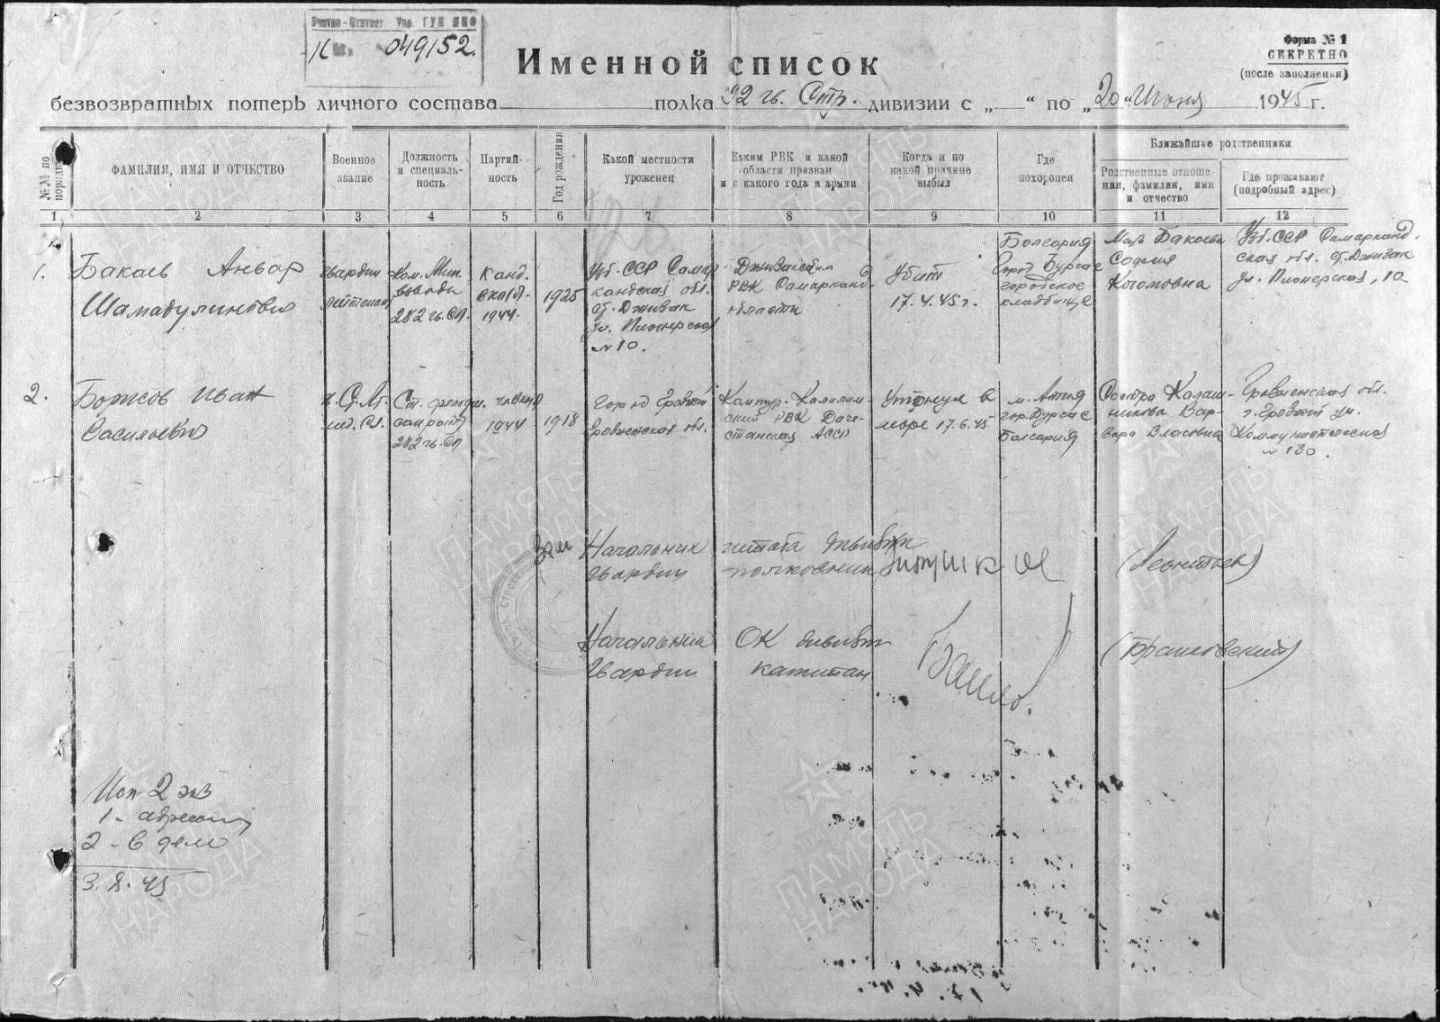 Учетно-Статист Упр. ГУК НКО
049152
Форма № 1
СЕКРЕТНО
(после заполнения)
Именной список
безвозвратных потерь личного состава полка 92 гв. Стр. дивизии с „ “ по „20“ Июня 1945 г.
№№ по порядку
ФАМИЛИЯ, ИМЯ И ОТЧЕСТВО
Военное звание
Должность и специаль-ность
Партий-ность
Год рождения
Какой местности уроженец
Каким РВК и какой области призван и с какого года в армии
Когда и по какой причине выбыл
Где похоронен
Ближайшие родственники
Родственные отноше-ния, фамилия, имя и отчество
Где проживают (подробный адрес)
1 2 3 4 5 6 7 8 9 10 11 12
1.
Бакаев Анвар
гвардии
лейтенант
Ком. Мин.
взвода
282 гв. СП.
Канд.
ВКП(б)
1944.
1925
Узб. ССР Самар
кандская обл.
ул. Пионерская
№ 10.
РВК Самарканд.
области
Убит
17.4.45 г.
Болгария
город Бургас
городское
кладбище
Мать Бакаева
София
Узб. ССР Самарканд.
ская обл.
ул. Пионерская, 10
2.
Борисов Иван
Васильевич
282 гв. СП
1944
1918
Город Грозный
Грозненская обл.
РВК Даге-
станская АССР
Утонул в
море 17.6.45
гор. Бургас
Болгария
Сестра Калаш-
никова Вар-
вара Власовна
Грозненская обл.
г. Грозный ул.
Коммунистическая
№ 130.
Зам Начальник штаба дивизии
гвардии полковник
(Леонтьев)
Начальник ОК дивизии
гвардии капитан
Исп 2 экз
1 - адресату
2 - в дело
3.8.45
ПАМЯТЬ
НАРОДА